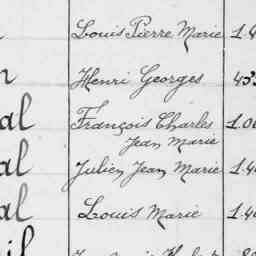 Louis Pierre Marie 1.4
n Henri Georges 45
al François Charles 1.00
Jean Marie
al Julien Jean Marie 1.40
al Louis Marie 1.40
il